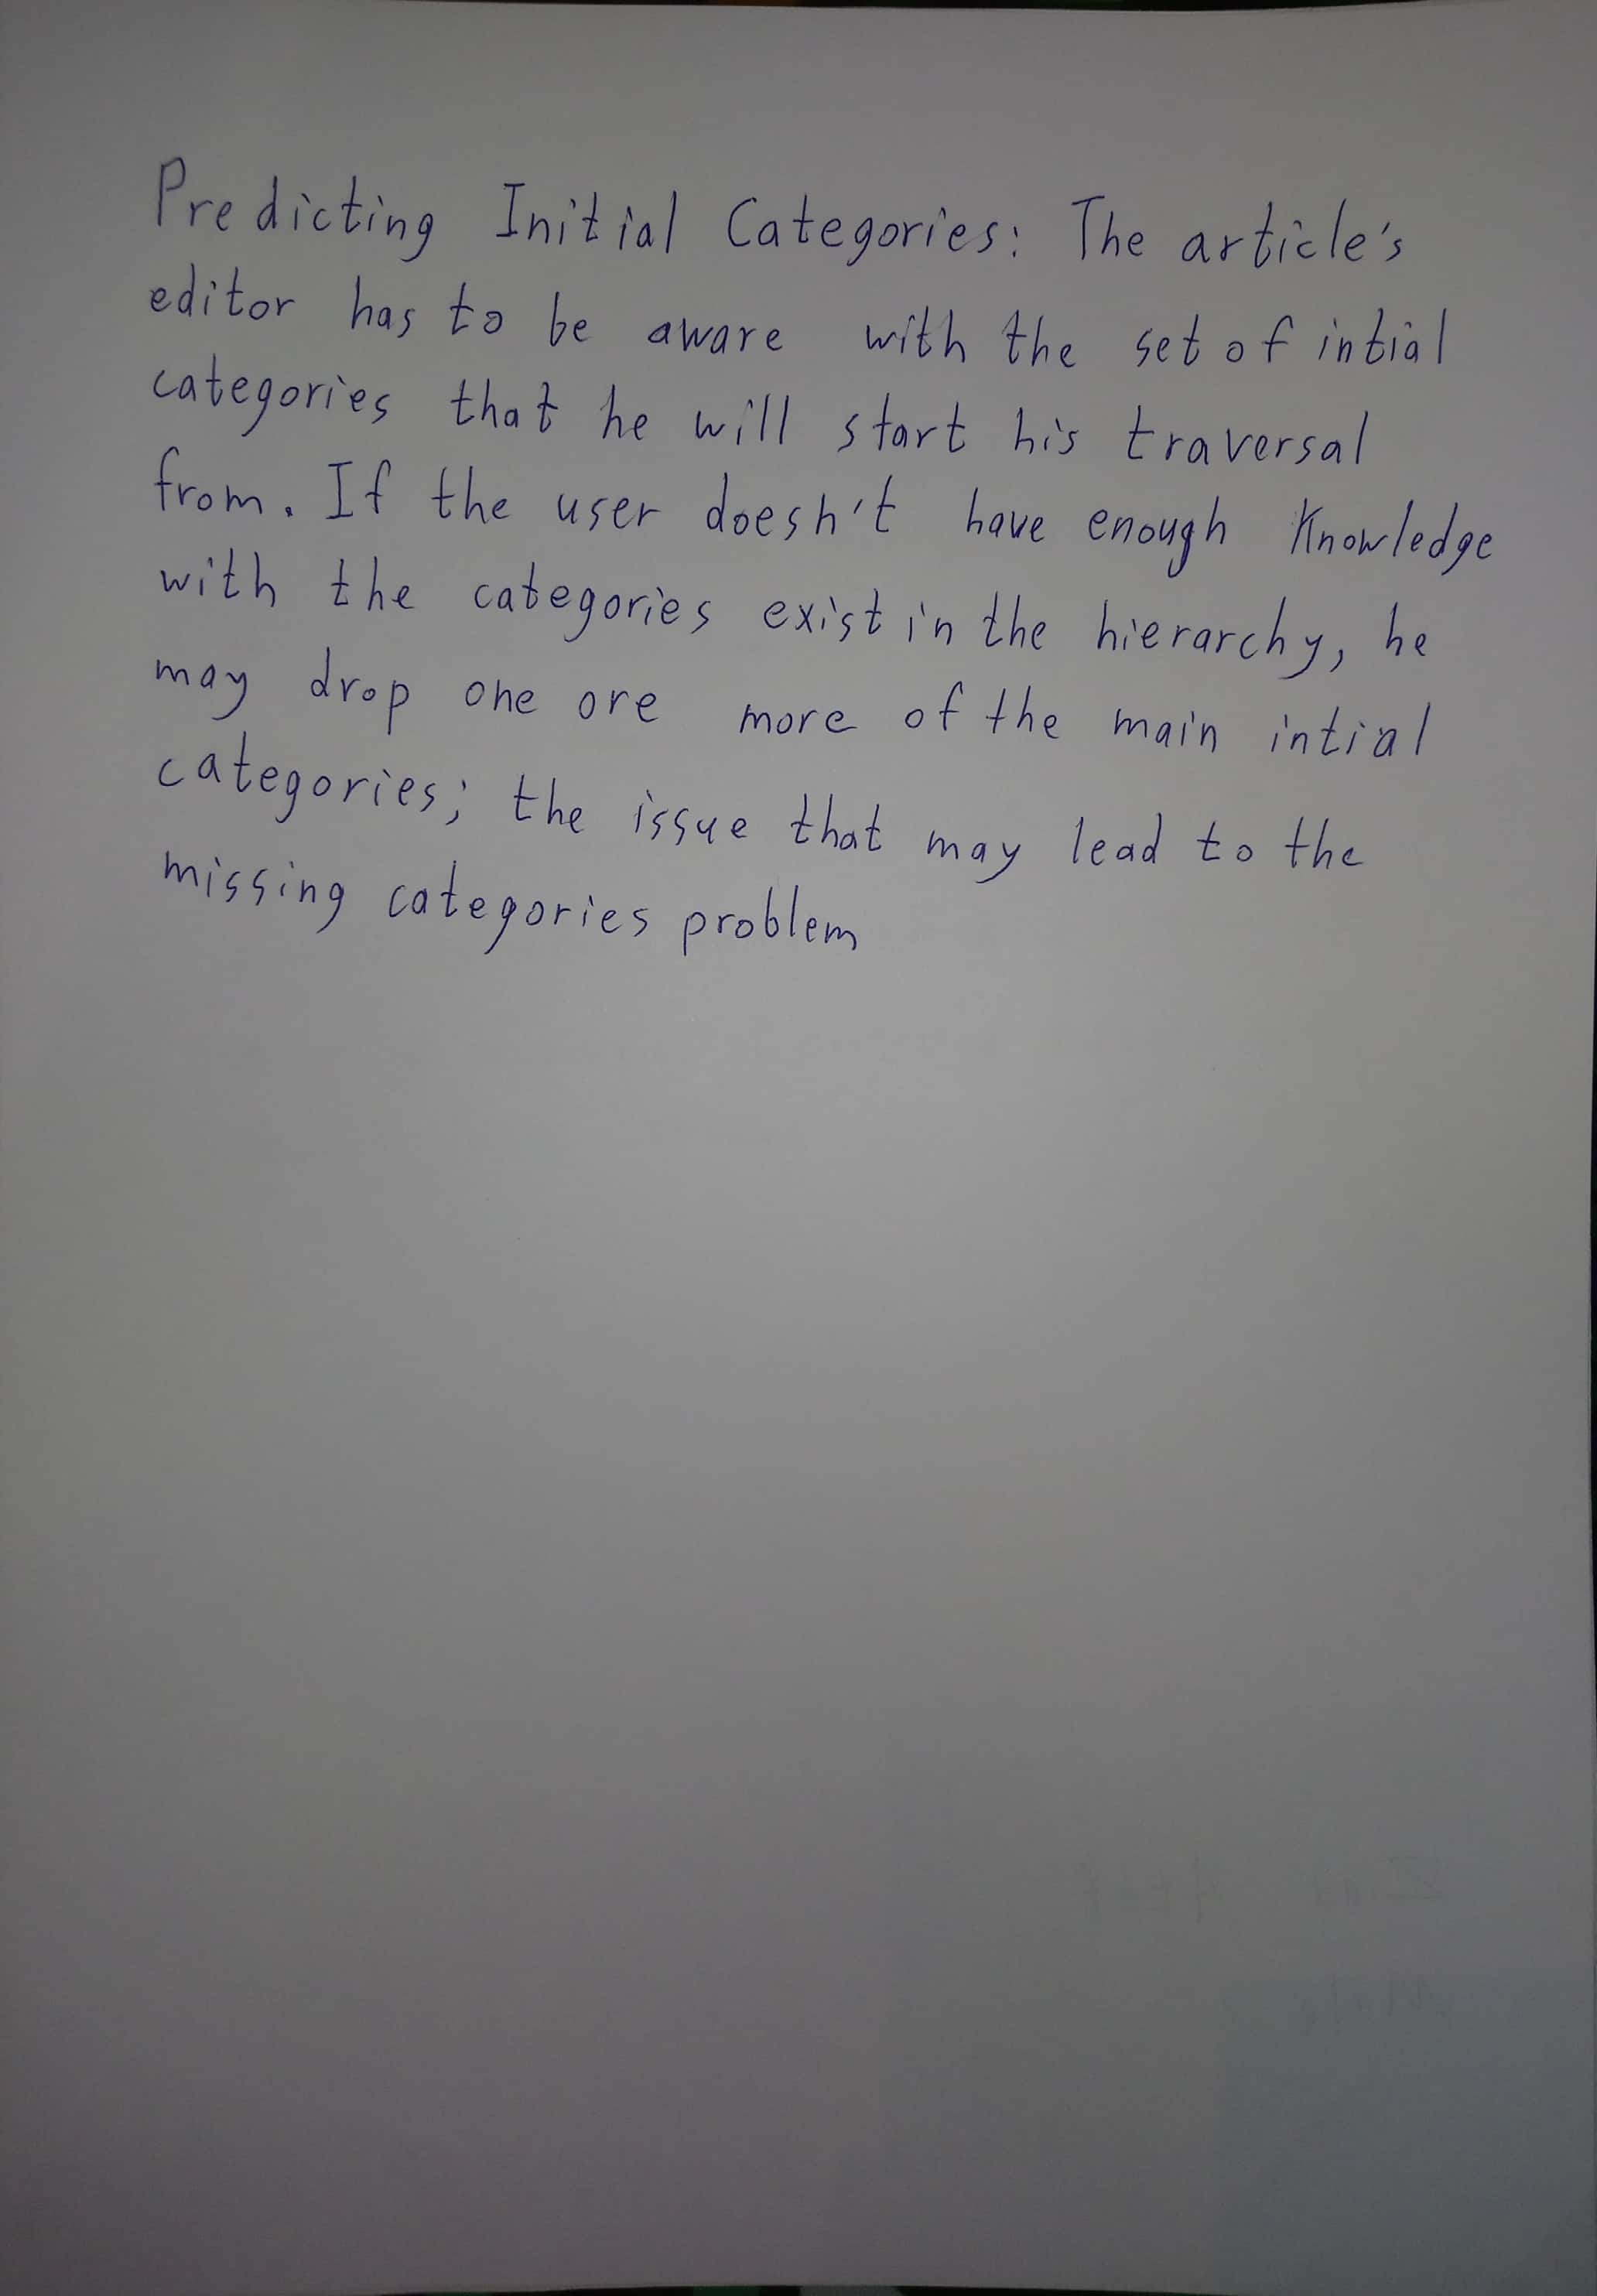 Predicting Initial Categories: The article's
editor has to be aware with the set of intial
categories that he will start his traversal
from. If the user doesn't have enough Knowledge
with the categories exist in the hierarchy, he
may drop one ore more of the main intial
categories; the issue that may lead to the
missing categories problem